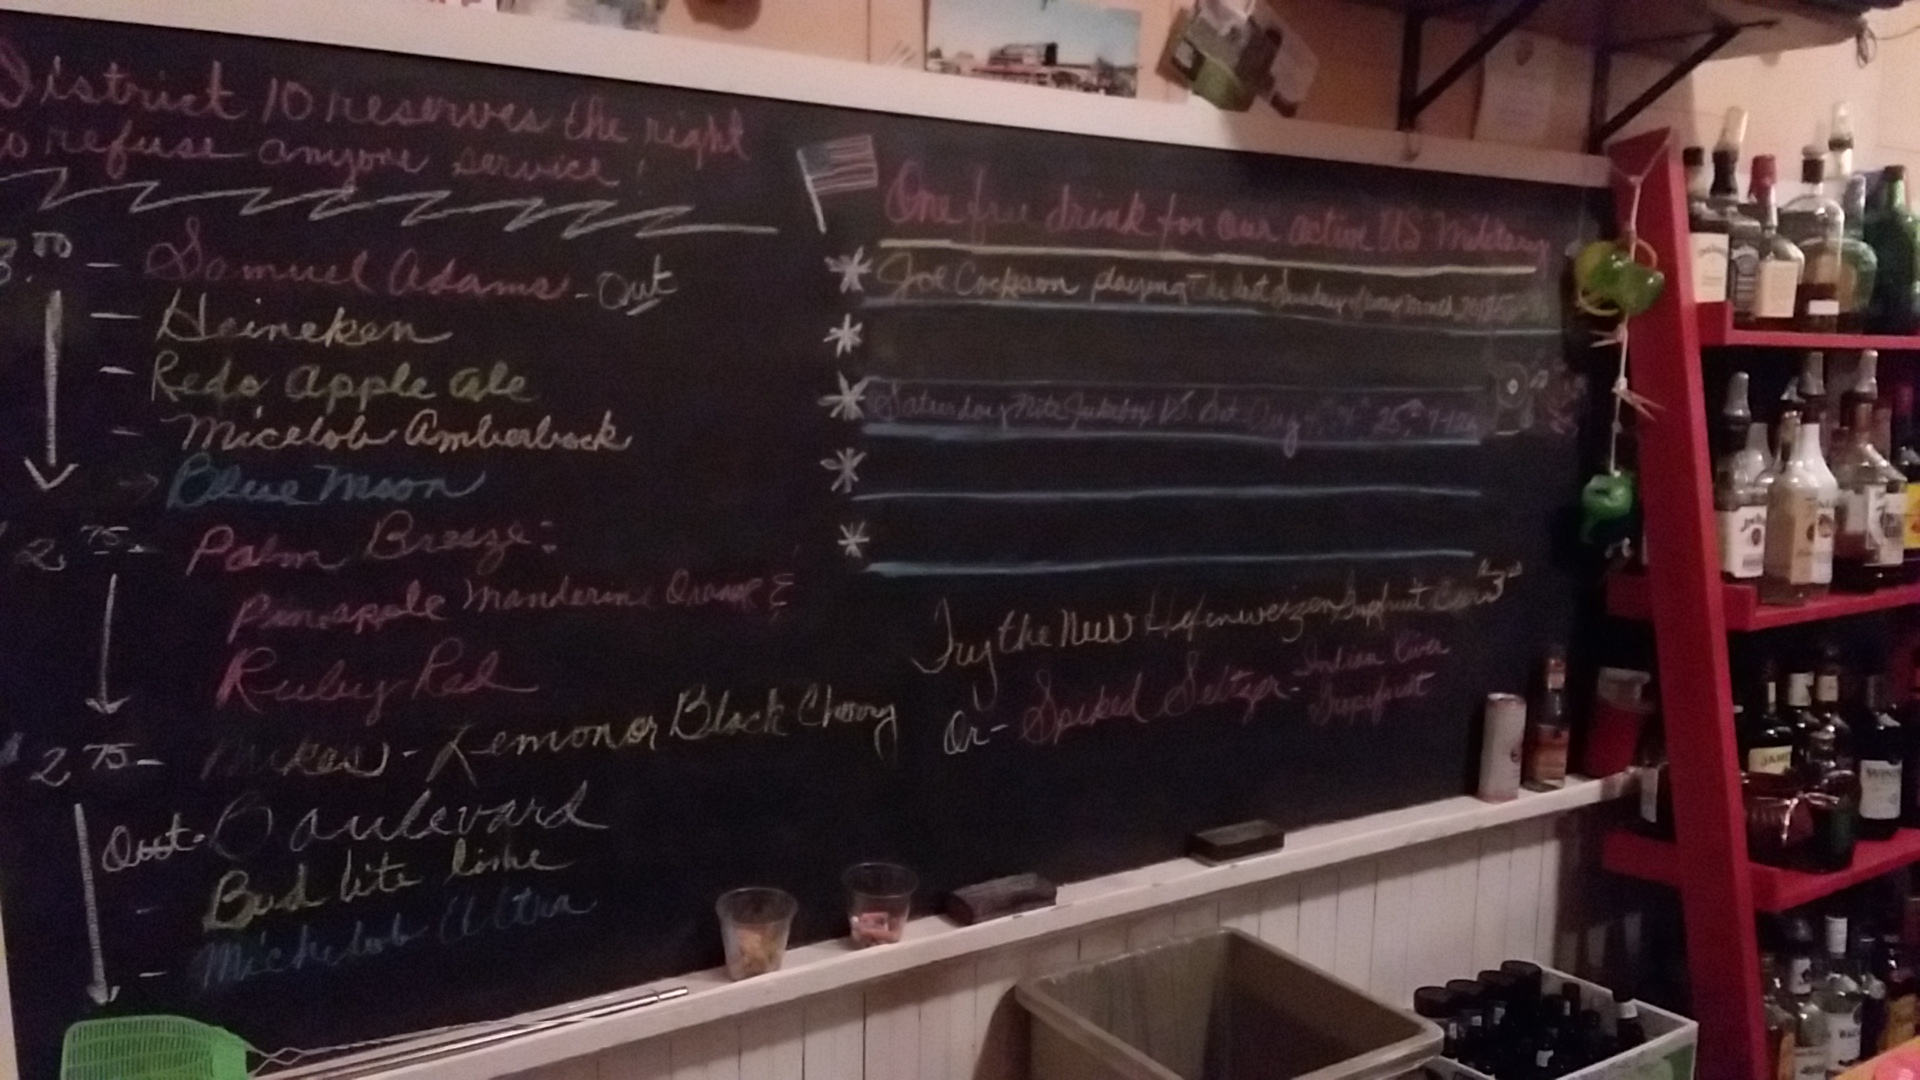 District 10 reserves the right
to refuse anyone service!
3.00 - Samuel Adams - Out
- Heineken
- Reds Apple Ale
- Micelob Amberbock
Blue Moon
2.75 - Palm Breeze:
Pineapple Mandarin Orange &
Ruby Red
2 75 - Mikes - Lemon or Black Cherry
Out - Boulevard
- Bud lite lime
- Michelob Ultra
One free drink for our active US Military
* Joe Cookson playing The last Sunday of every month
*
* Saturday Nite Jukebox Sat Aug 25th
*
*
Try the New Hefenweizen Grapfruit
Or - Spiked Seltzer - Indian River
Grapefruit